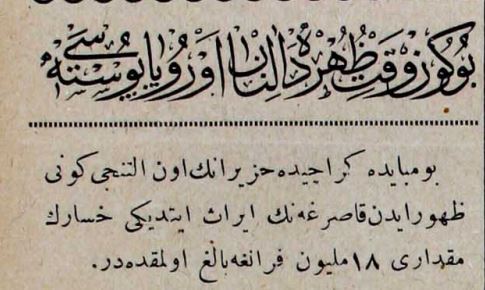 بوكون وقت ظهرده آلنان اوروپا پوسته سى
بومبايده كراچيده حزيرانك اون التنجى كونى
ظهور ايدن قاصرغه نك ايراث ايتديكى خسارك
مقدارى ١٨ مليون فرانغه بالغ اولمقده در.